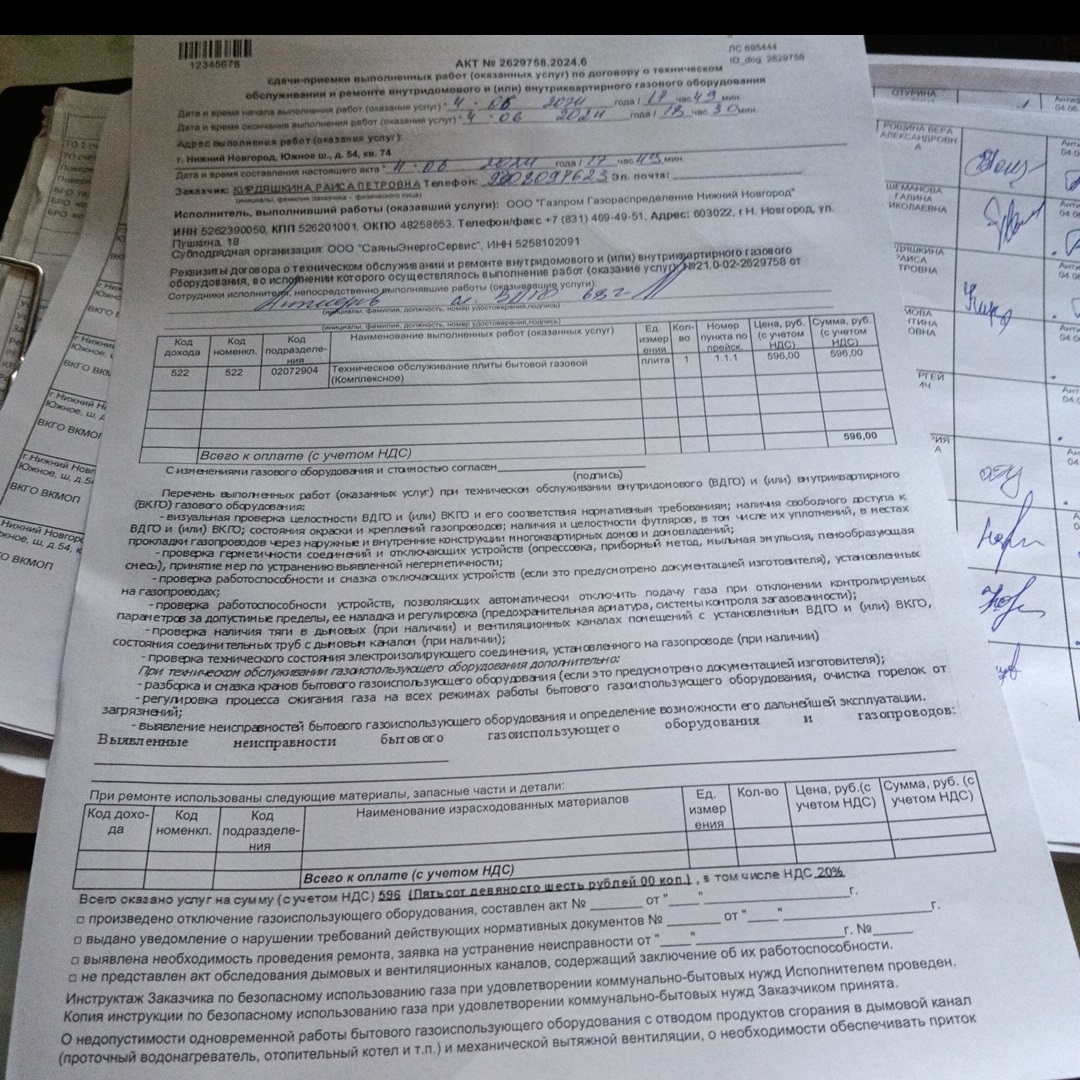 12345678
ЛС 695444
ID_dog 2629758
АКТ № 2629758.2024.6
сдачи-приемки выполненных работ (оказанных услуг) по договору о техническом
обслуживании и ремонте внутридомового и (или) внутриквартирного газового оборудования
Дата и время начала выполнения работ (оказания услуг) " 4 . 06 2024 года / 17 час 49 мин.
Дата и время окончания выполнения работ (оказания услуг) " 4 . 06 2024 года / 18 час 30 мин.
Адрес выполнения работ (оказания услуг):
г. Нижний Новгород, Южное ш., д. 54, кв. 74
Дата и время составления настоящего акта " 4 . 06 2024 года / 17 час 45 мин.
Заказчик: КИРДЯШКИНА РАИСА ПЕТРОВНА Телефон: Эл. почта:
(инициалы, фамилия заказчика - физического лица)
Исполнитель, выполнивший работы (оказавший услуги): ООО "Газпром Газораспределение Нижний Новгород"
ИНН 5262390050, КПП 526201001, ОКПО 48258653, Телефон/факс +7 (831) 469-49-51, Адрес: 603022, г Н. Новгород, ул.
Пушкина, 18
Субподрядная организация: ООО "СаяныЭнергоСервис", ИНН 5258102091
Реквизиты договора о техническом обслуживании и ремонте внутридомового и (или) внутриквартирного газового
оборудования, во исполнении которого осуществлялось выполнение работ (оказание услуг) №21.0-02-2629758 от
Сотрудники исполнителя, непосредственно выполнявшие работы (оказывавшие услуги)
(инициалы, фамилия, должность, номер удостоверения,подпись)
(инициалы, фамилия, должность, номер удостоверения,подпись)
Код дохода Код номенкл. Код подразделе-ния Наименование выполненных работ (оказанных услуг) Ед измер ения Кол-во Номер пункта по прейск. Цена, руб. (с учетом НДС) Сумма, руб. (с учетом НДС)
522 522 02072904 Техническое обслуживание плиты бытовой газовой (Комплексное) плита 1 1.1.1 596,00 596,00
Всего к оплате (с учетом НДС) 596,00
С изменениями газового оборудования и стоимостью согласен
(подпись)
Перечень выполненных работ (оказанных услуг) при техническом обслуживании внутридомового (ВДГО) и (или) внутриквартирного
(ВКГО) газового оборудования:
- визуальная проверка целостности ВДГО и (или) ВКГО и его соответствия нормативным требованиям; наличия свободного доступа к
ВДГО и (или) ВКГО; состояния окраски и креплений газопроводов; наличия и целостности футляров, в том числе их уплотнений, в местах
прокладки газопроводов через наружные и внутренние конструкции многоквартирных домов и домовладений;
- проверка герметичности соединений и отключающих устройств (опрессовка, приборный метод, мыльная эмульсия, пенообразующая
смесь), принятие мер по устранению выявленной негерметичности;
- проверка работоспособности и смазка отключающих устройств (если это предусмотрено документацией изготовителя), установленных
на газопроводах;
- проверка работоспособности устройств, позволяющих автоматически отключить подачу газа при отклонении контролируемых
параметров за допустимые пределы, ее наладка и регулировка (предохранительная арматура, системы контроля загазованности);
- проверка наличия тяги в дымовых (при наличии) и вентиляционных каналах помещений с установленным ВДГО и (или) ВКГО,
состояния соединительных труб с дымовым каналом (при наличии);
- проверка технического состояния электроизолирующего соединения, установленного на газопроводе (при наличии)
При техническом обслуживании газоиспользующего оборудования дополнительно:
- разборка и смазка кранов бытового газоиспользующего оборудования (если это предусмотрено документацией изготовителя);
- регулировка процесса сжигания газа на всех режимах работы бытового газоиспользующего оборудования, очистка горелок от
загрязнений;
- выявление неисправностей бытового газоиспользующего оборудования и определение возможности его дальнейшей эксплуатации.
Выявленные неисправности бытового газоиспользующего оборудования и газопроводов:
При ремонте использованы следующие материалы, запасные части и детали:
Код дохо-да Код номенкл. Код подразделе-ния Наименование израсходованных материалов Ед. измер ения Кол-во Цена, руб.(с учетом НДС) Сумма, руб. (с учетом НДС)
Всего к оплате (с учетом НДС)
Всего оказано услуг на сумму (с учетом НДС) 596 (Пятьсот девяносто шесть рублей 00 коп.) , в том числе НДС 20%
□ произведено отключение газоиспользующего оборудования, составлен акт № от "____" г.
□ выдано уведомление о нарушении требований действующих нормативных документов № от "____" г.
□ выявлена необходимость проведения ремонта, заявка на устранение неисправности от "____" г. №
□ не представлен акт обследования дымовых и вентиляционных каналов, содержащий заключение об их работоспособности.
Инструктаж Заказчика по безопасному использованию газа при удовлетворении коммунально-бытовых нужд Исполнителем проведен.
Копия инструкции по безопасному использованию газа при удовлетворении коммунально-бытовых нужд Заказчиком принята.
О недопустимости одновременной работы бытового газоиспользующего оборудования с отводом продуктов сгорания в дымовой канал
(проточный водонагреватель, отопительный котел и т.п.) и механической вытяжной вентиляции, о необходимости обеспечивать приток